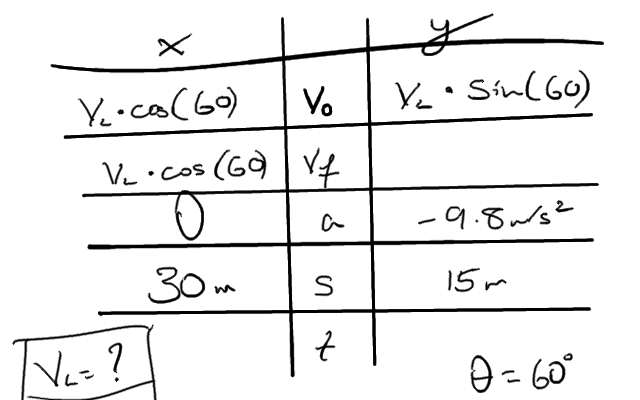 x y
V_L · cos(60) V₀ V_L · Sin(60)
V_L · cos(60) Vf
0 a -9.8 m/s²
30 m S 15 m
t
V_L = ? θ = 60°